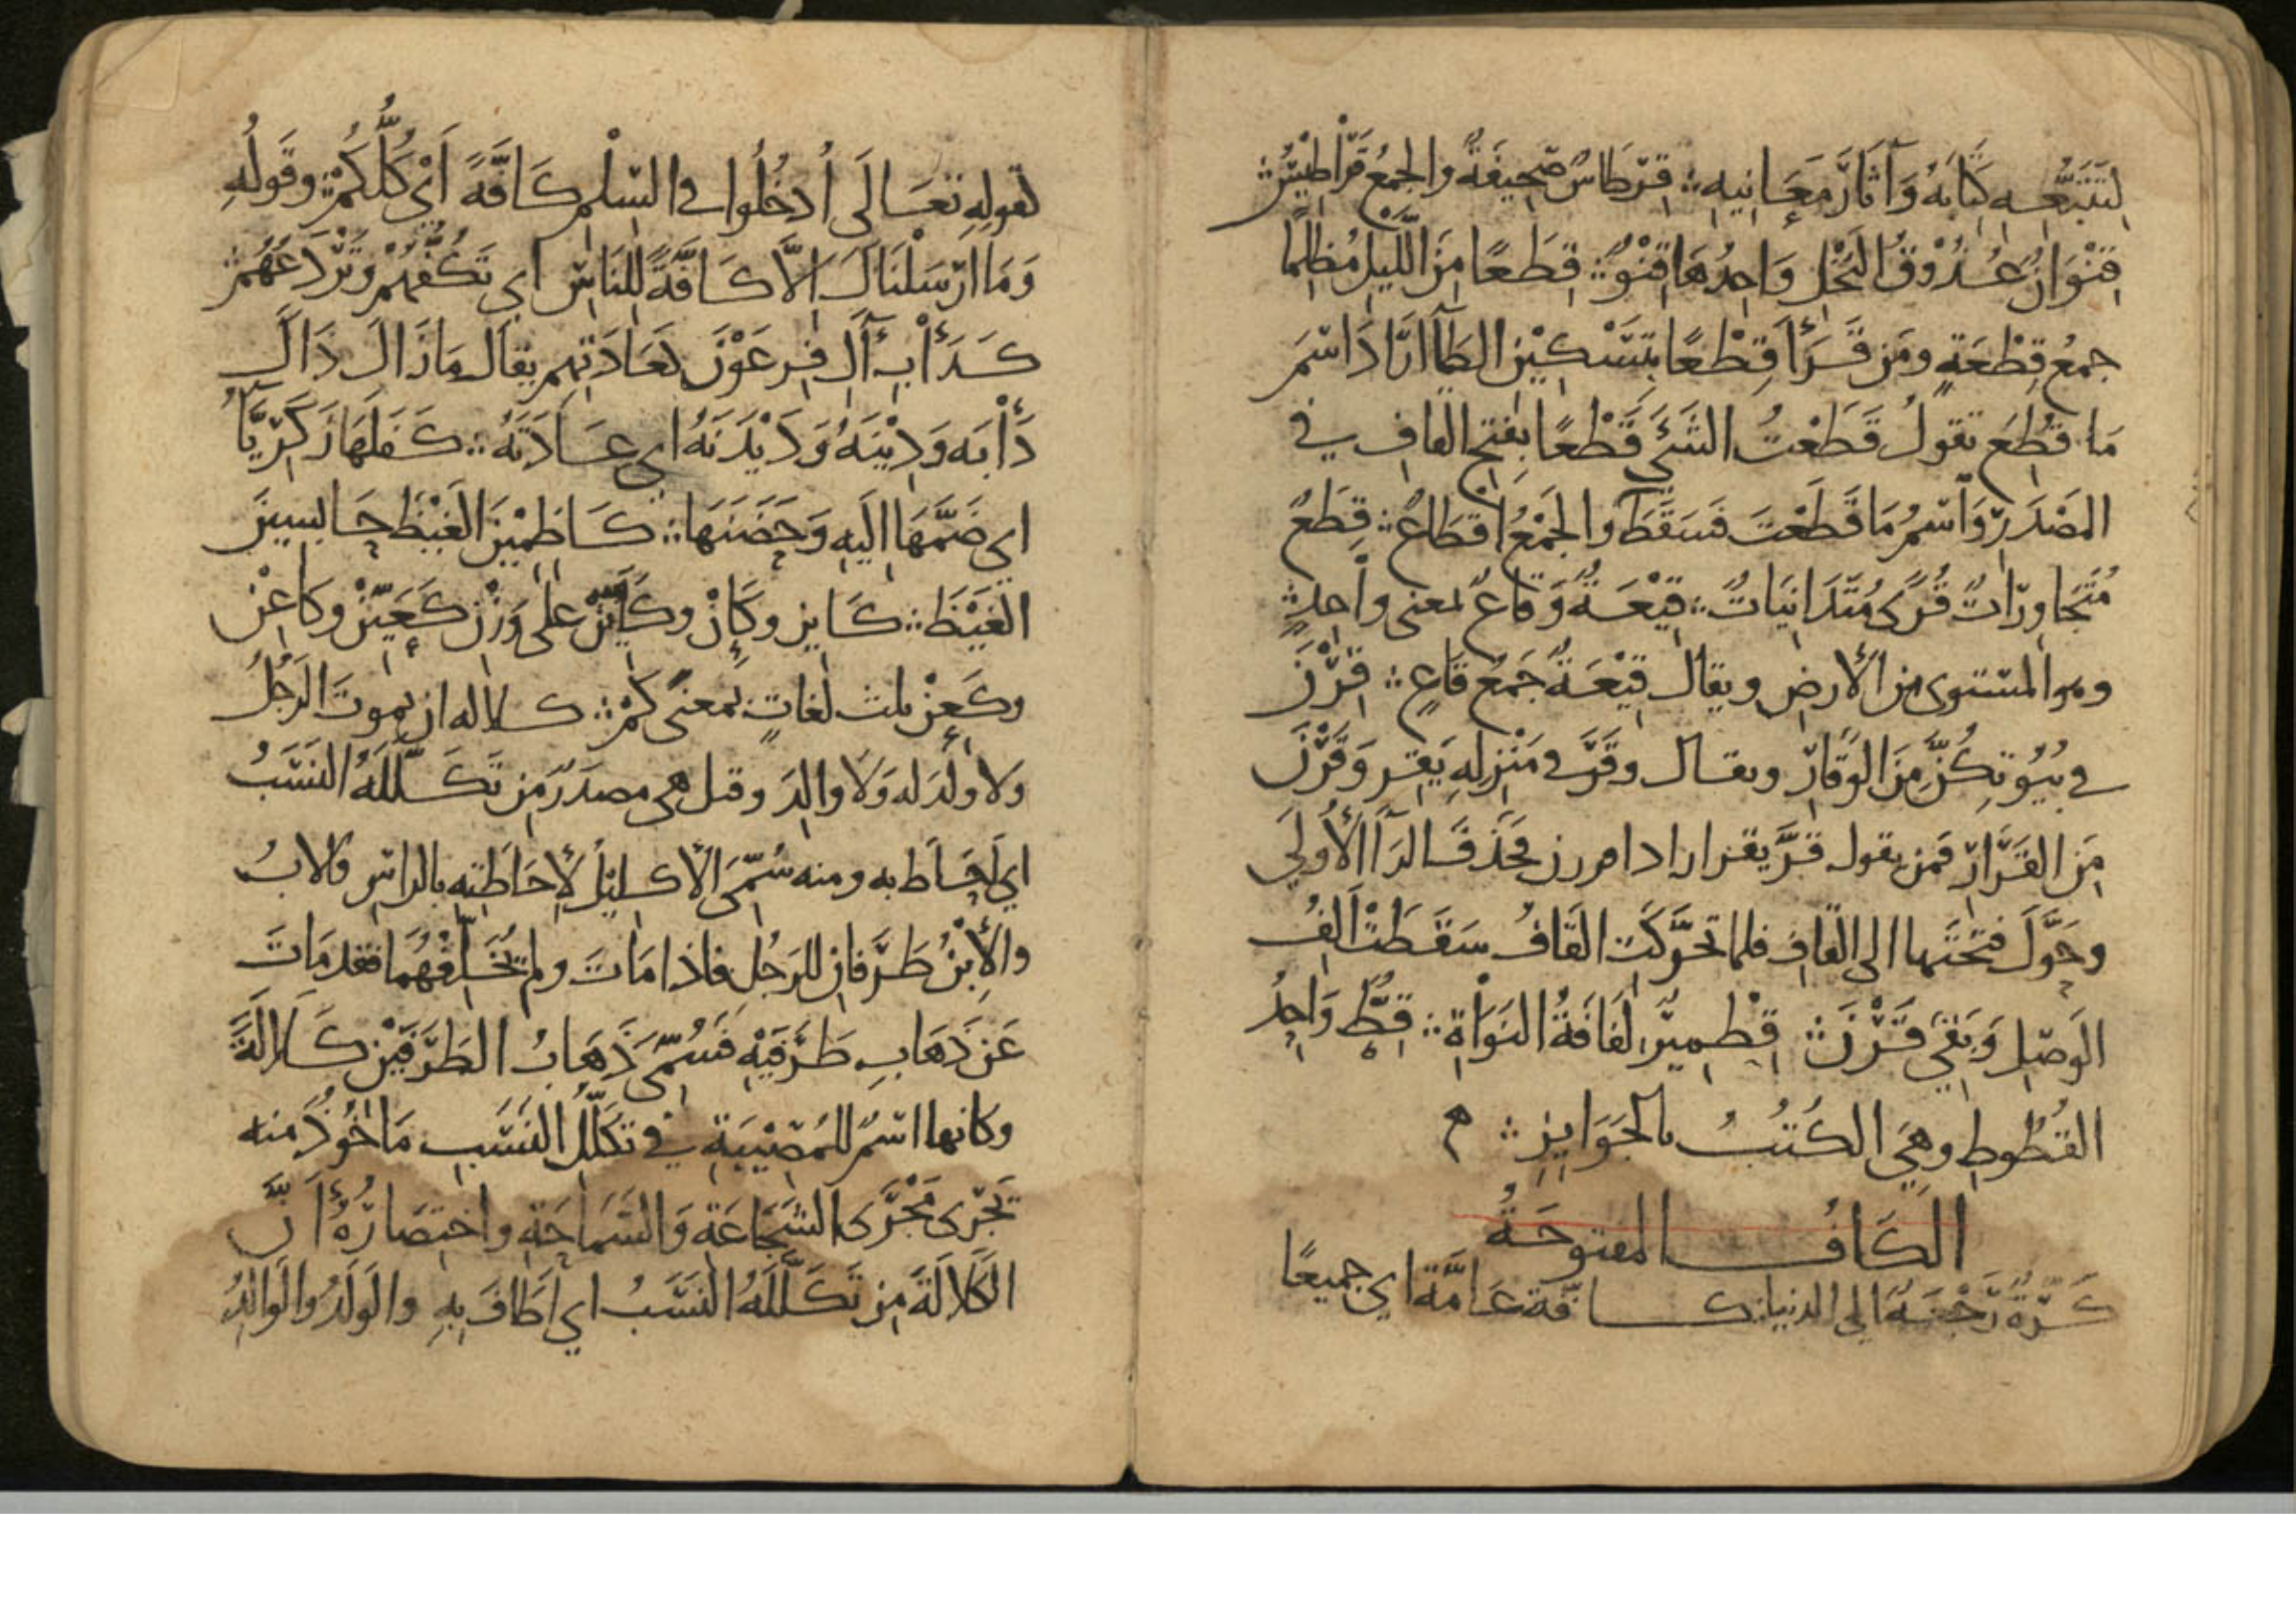 لِتَتَبُّعِهِ كِتَابَهُ وَآثَارَ مَعَانِيهِ ∴ قِرْطَاسٌ صَحِيفَةٌ والجمْعُ قَرَاطِيْسُ ∴
قِنْوَانٌ عُذُوْقُ النَّخْلِ وَاحِدُهَا قِنْوٌ ∴ قِطَعًا مِنَ اللَّيْلِ مُظْلِمًا
جمعُ قِطْعَةٍ ومَن قَرَأَ قِطْعًا بِتَسْكِيْنِ الطَّآ ارَادَ اسْمَ
مَا قُطِعَ تقولُ قَطَعْتُ الشَّئَ قَطْعًا بِفتحِ القافِ في
المَصْدَرِ وَاسْمُ مَا قَطَعْتَ فَسَقَطَ والجَمْعُ اَقْطَاعٌ ∴ قِطَعٌ
مُتَجَاوِرَاتٌ قُرًى مُتَدَانِيَاتٌ ∴ قِيْعَةٌ وَقَاعٌ لمعنى واحِدٍ ∴
وهو المستوى مِن الأَرضِ ويقال قِيْعَةٌ جَمْعُ قَاعٍ ∴ قِرْنَ
في بُيُوتِكُنَّ مِنَ الوَقَارِ ويقال وقَرَ في مَنْزِلِهِ يَقِرُ وَقَرْنَ
مِنَ القَرَارِ فمَن يقول قَرَّ يقر اراد اقررن فحَذَفَ الرَآ الأُولَى
وحَوَّلَ فتحتَها الى القافِ فلما تحرَّكَتِ القَافُ سَقَطَتْ اَلِفُ
الوَصْلِ وَبَقِيَ قَرْنَ ∴ قِطْمِيْرٌ لِفَافَةُ النَوَاةِ ∴ قِطٌّ وَاحِدُ
القُطُوطِ وهِيَ الكُتُبُ بالجَوَايِزِ ∴ م
الكَافُ المفتوحَةُ
كَرَّةٌ رَجْعَةٌ الى الدنيا ∴ كافَّة عَامَّة اي جميعًا
لقولِهِ تعَالَى اُدخُلُوا في السِّلْمِ كَافَّةً اَيْ كُلُّكُمْ ∴ وقَولُهِ
وَمَا ارْسَلْنَاكَ إلَّا كَافَّةً لِلنَّاسِ اي تَكُفُّهُمْ وتَرْدَعُهُمْ ∴
كَدَأْبِ آلِ فِرعَوْنَ لعَادَتِهِم يقال مَا زَالَ ذَاكَ
دَأْبَه وَدِيْنَهُ وَدَيْدَنَهُ اي عَادَتَهُ ∴ كَفَلَهَا زَكَرِيَّآ
اي ضَمَّهَا اِلَيهِ وَحَضَنَهَا ∴ كَاظِمِيْنَ الغَيْظَ حَابسينَ
الغَيْظَ ∴ كَاين وكَإِنْ وكَأَيِّنْ على وَزْنِ كَعَيِّنْ وكَاعِنْ
وكَعِنْ ثلث لغاتٍ بمعنَى كَمْ ∴ كلاله ان يموتَ الرَجُلُ
ولا ولَدَ له وَلَا والِدَ وقيل هي مصدَرٌ مِن تَكَلَّلَهُ النَسَبُ
اي اَحَاطَ به ومنه سُمِّيَ الأِكليْلُ لِأحَاطَتِهِ بالراسِ فالابُ
والأِبْنُ طَرَفانِ للرَجُلِ فاذا مَاتَ ولم يُخَلِّفْهُمَا فقد مَاتَ
عَن ذَهَابِ طَرَفَيْهِ فَسُمِّىَ ذَهَابُ الطَرَفَيْنِ كَلَالَةً
وكانها اسْمٌ للمُصِيْبَةِ في تكَلُّلِ النَسَبِ مَاخُوذٌ منه
تَجْرى مَجْرَى الشَجَاعَةِ وَالسَمَاحَةِ واختِصَارُهُ أَنَّ
الكَلَالَةَ مِن تَكَلَّلَهُ النَسَبُ اي اَطَافَ بِهِ والوَلَدُ والوَالِدُ